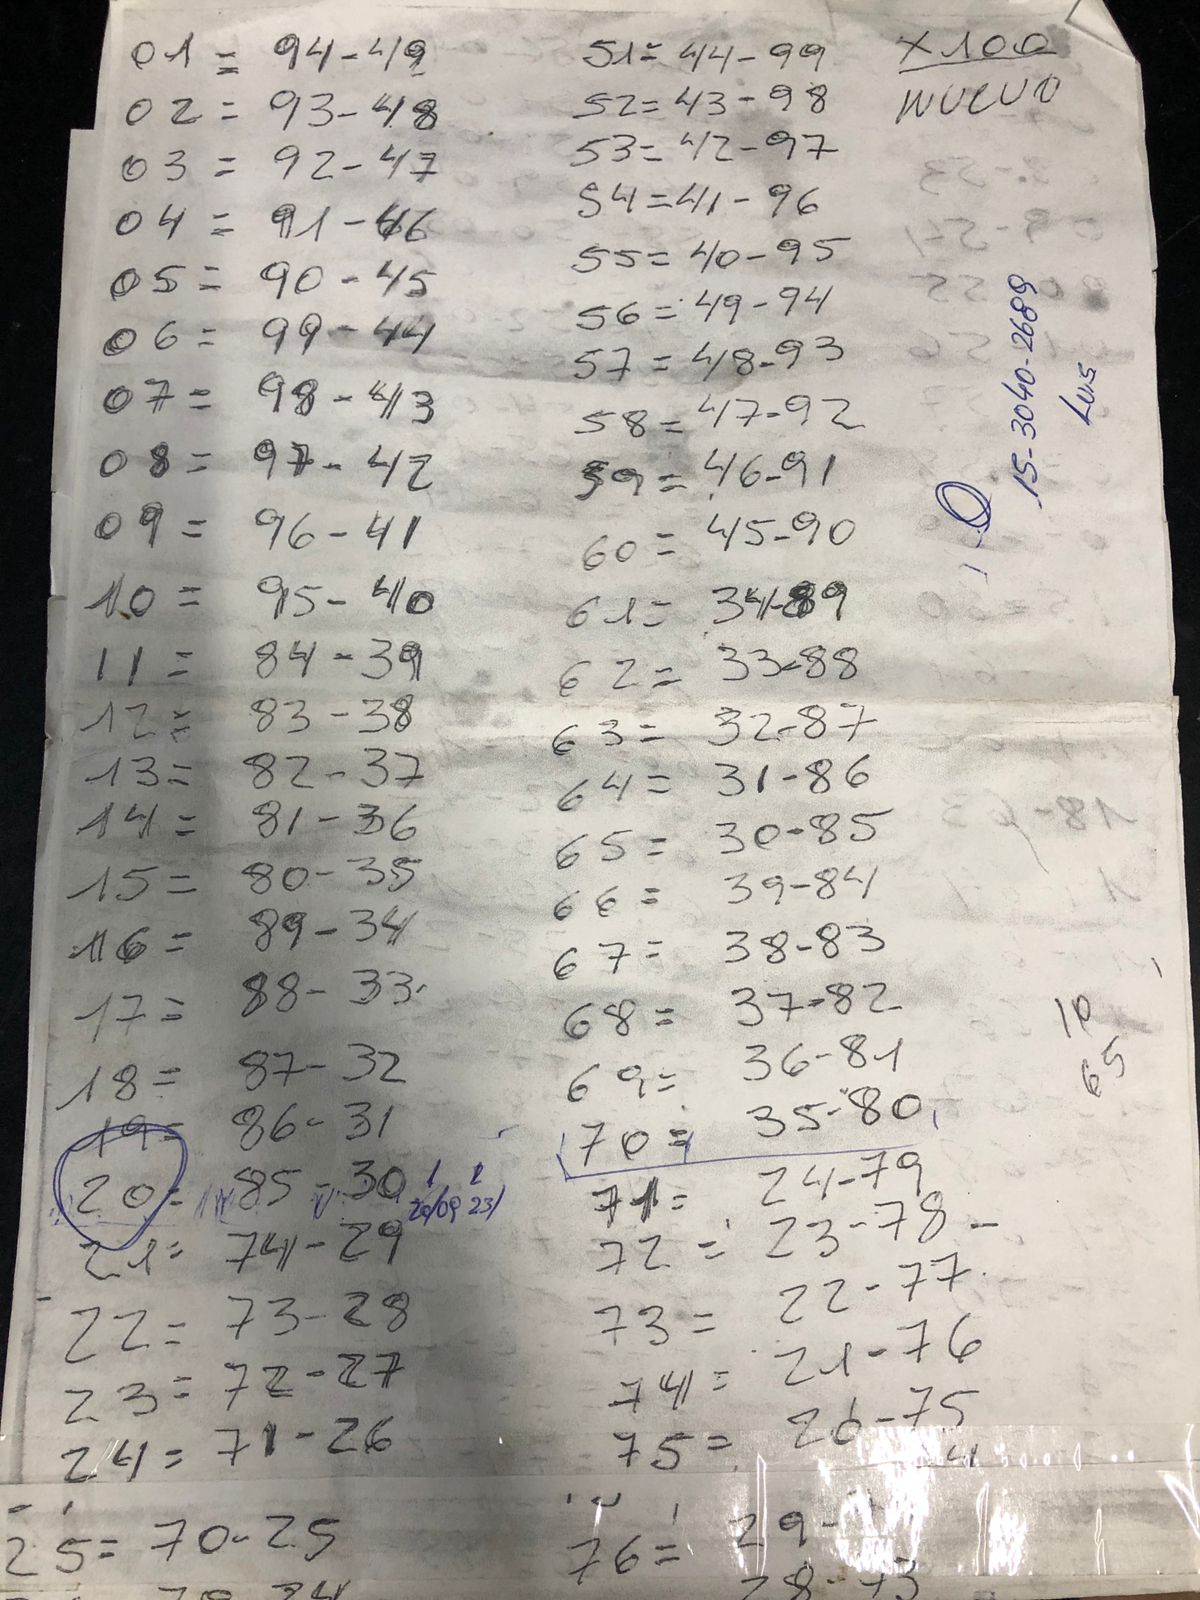 01 = 94-49
02 = 93-48
03 = 92-47
04 = 91-46
05 = 90-45
06 = 99-44
07 = 98-43
08 = 97-42
09 = 96-41
10 = 95-40
11 = 84-39
12 = 83-38
13 = 82-37
14 = 81-36
15 = 80-35
16 = 89-34
17 = 88-33
18 = 87-32
19 = 86-31
20 = 85-30
20/09 23/
21 = 74-29
22 = 73-28
23 = 72-27
24 = 71-26
25 = 70-25
51 = 44-99
52 = 43-98
53 = 42-97
54 = 41-96
55 = 40-95
56 = 49-94
57 = 48-93
58 = 47-92
59 = 46-91
60 = 45-90
61 = 34-89
62 = 33-88
63 = 32-87
64 = 31-86
65 = 30-85
66 = 39-84
67 = 38-83
68 = 37-82
69 = 36-81
70 = 35-80
71 = 24-79
72 = 23-78-
73 = 22-77
74 = 21-76
75 = 20-75
76 = 29-
28-73
X100
NUEVO
15-3040-2689
Luis
10
65